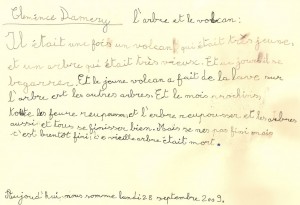 Clémence Damery l'arbre et le volcan :
Il était une fois un volcan qui était très jeune,
et un arbre qui était très vieux. Et un jour il se
bagarrer. Et le jeune volcan a fait de la lave sur
l'arbre est les autres arbres. Et le mois prochins,
toute les feure reupouse, et l'arbre reupousser, et les arbres
aussi et tous se finissor bien. Mais se nes pas fini mais
c'est bientôt fini, le vieille arbre était mort.
Aujourd'hui nous somme lundi 28 septembre 2009.